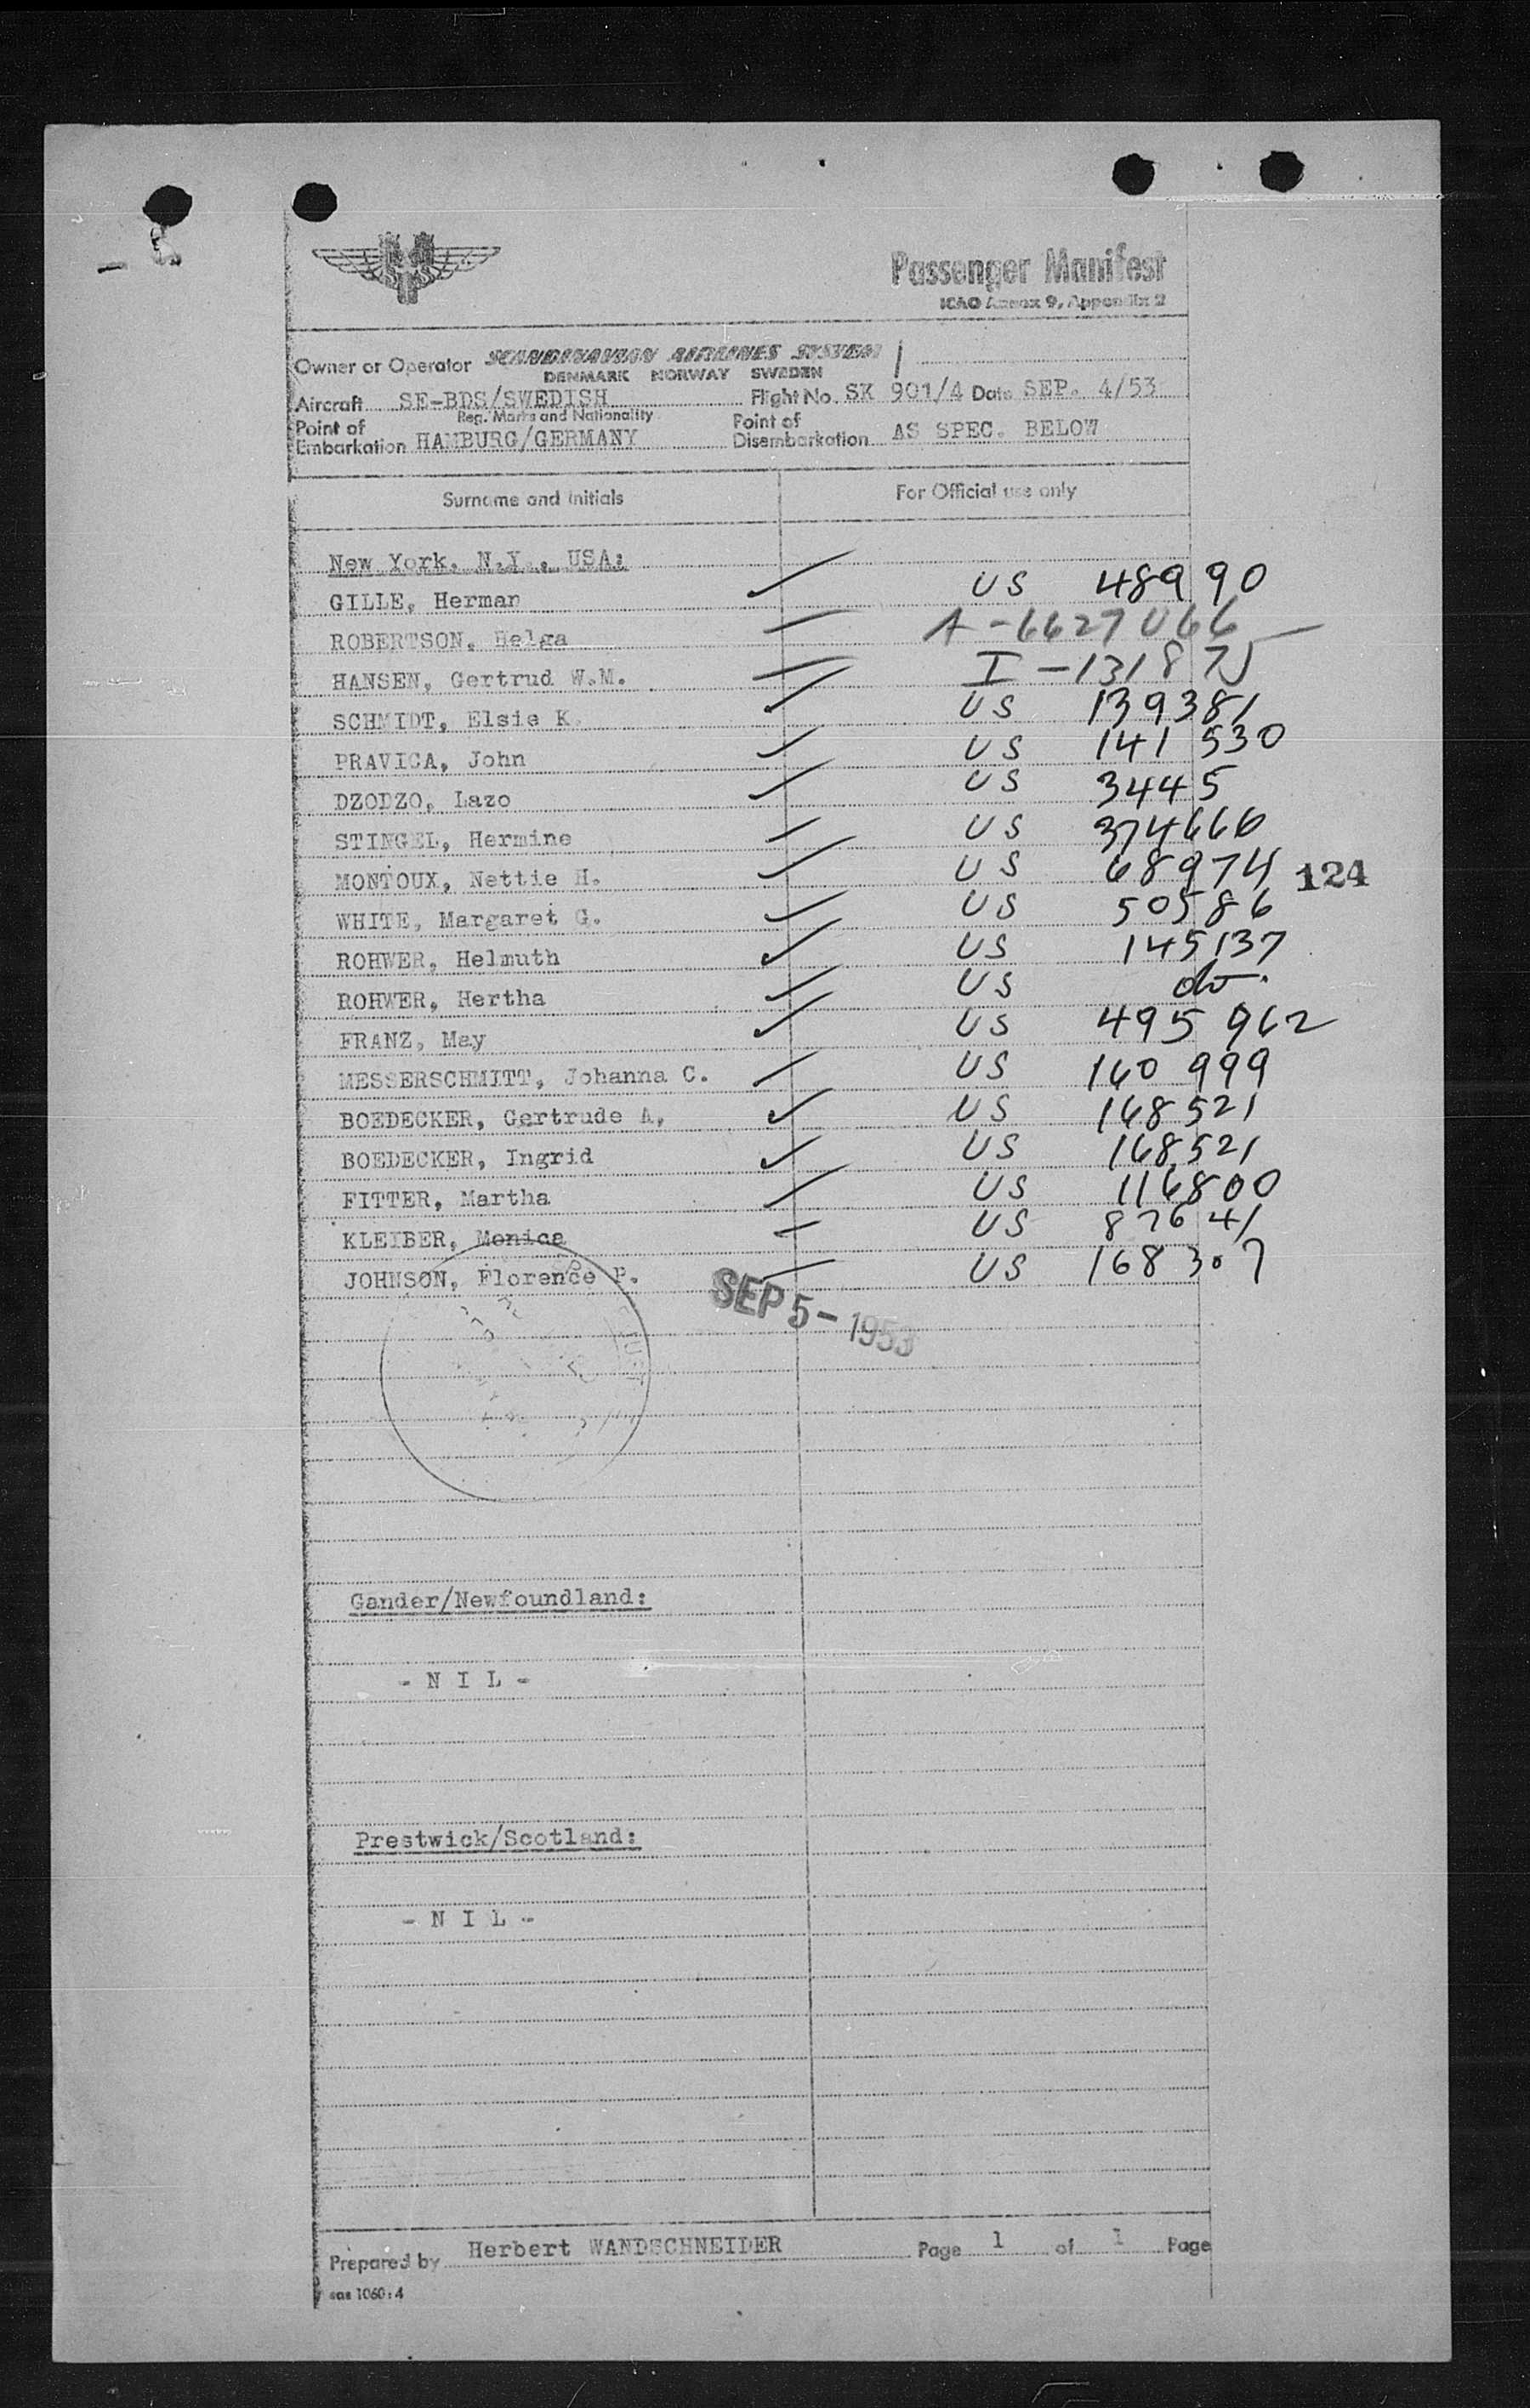 Passenger Manifest
ICAO Annex 9, Appendix 2
Owner or Operator SCANDINAVIAN AIRLINES SYSTEM
DENMARK NORWAY SWEDEN
Aircraft SE-BDS/SWEDISH Flight No. SK 901/4 Date SEP. 4/53
Reg. Marks and Nationality
Point of Embarkation HAMBURG/GERMANY Point of Disembarkation AS SPEC. BELOW
Surname and Initials For Official use only
New York, N.Y., USA:
GILLE, Herman US 48990
ROBERTSON, Helga A-6627066
HANSEN, Gertrud W.M. I-13187
SCHMIDT, Elsie K. US 139381
PRAVICA, John US 141530
DZODZO, Lazo US 34445
STINGEL, Hermine US 374666
MONTOUX, Nettie H. US 68974
124
WHITE, Margaret G. US 50586
ROHWER, Helmuth US 145137
ROHWER, Hertha US do.
FRANZ, May US 495962
MESSERSCHMITT, Johanna C. US 160999
BOEDECKER, Gertrude A, US 168521
BOEDECKER, Ingrid US 168521
FITTER, Martha US 116800
KLEIBER, Monica US 87641
JOHNSON, Florence P. US 168307
SEP 5-1953
Gander/Newfoundland:
- N I L -
Prestwick/Scotland:
- N I L -
Prepared by Herbert WANDSCHNEIDER Page 1 of 1 Page
sas 1060:4